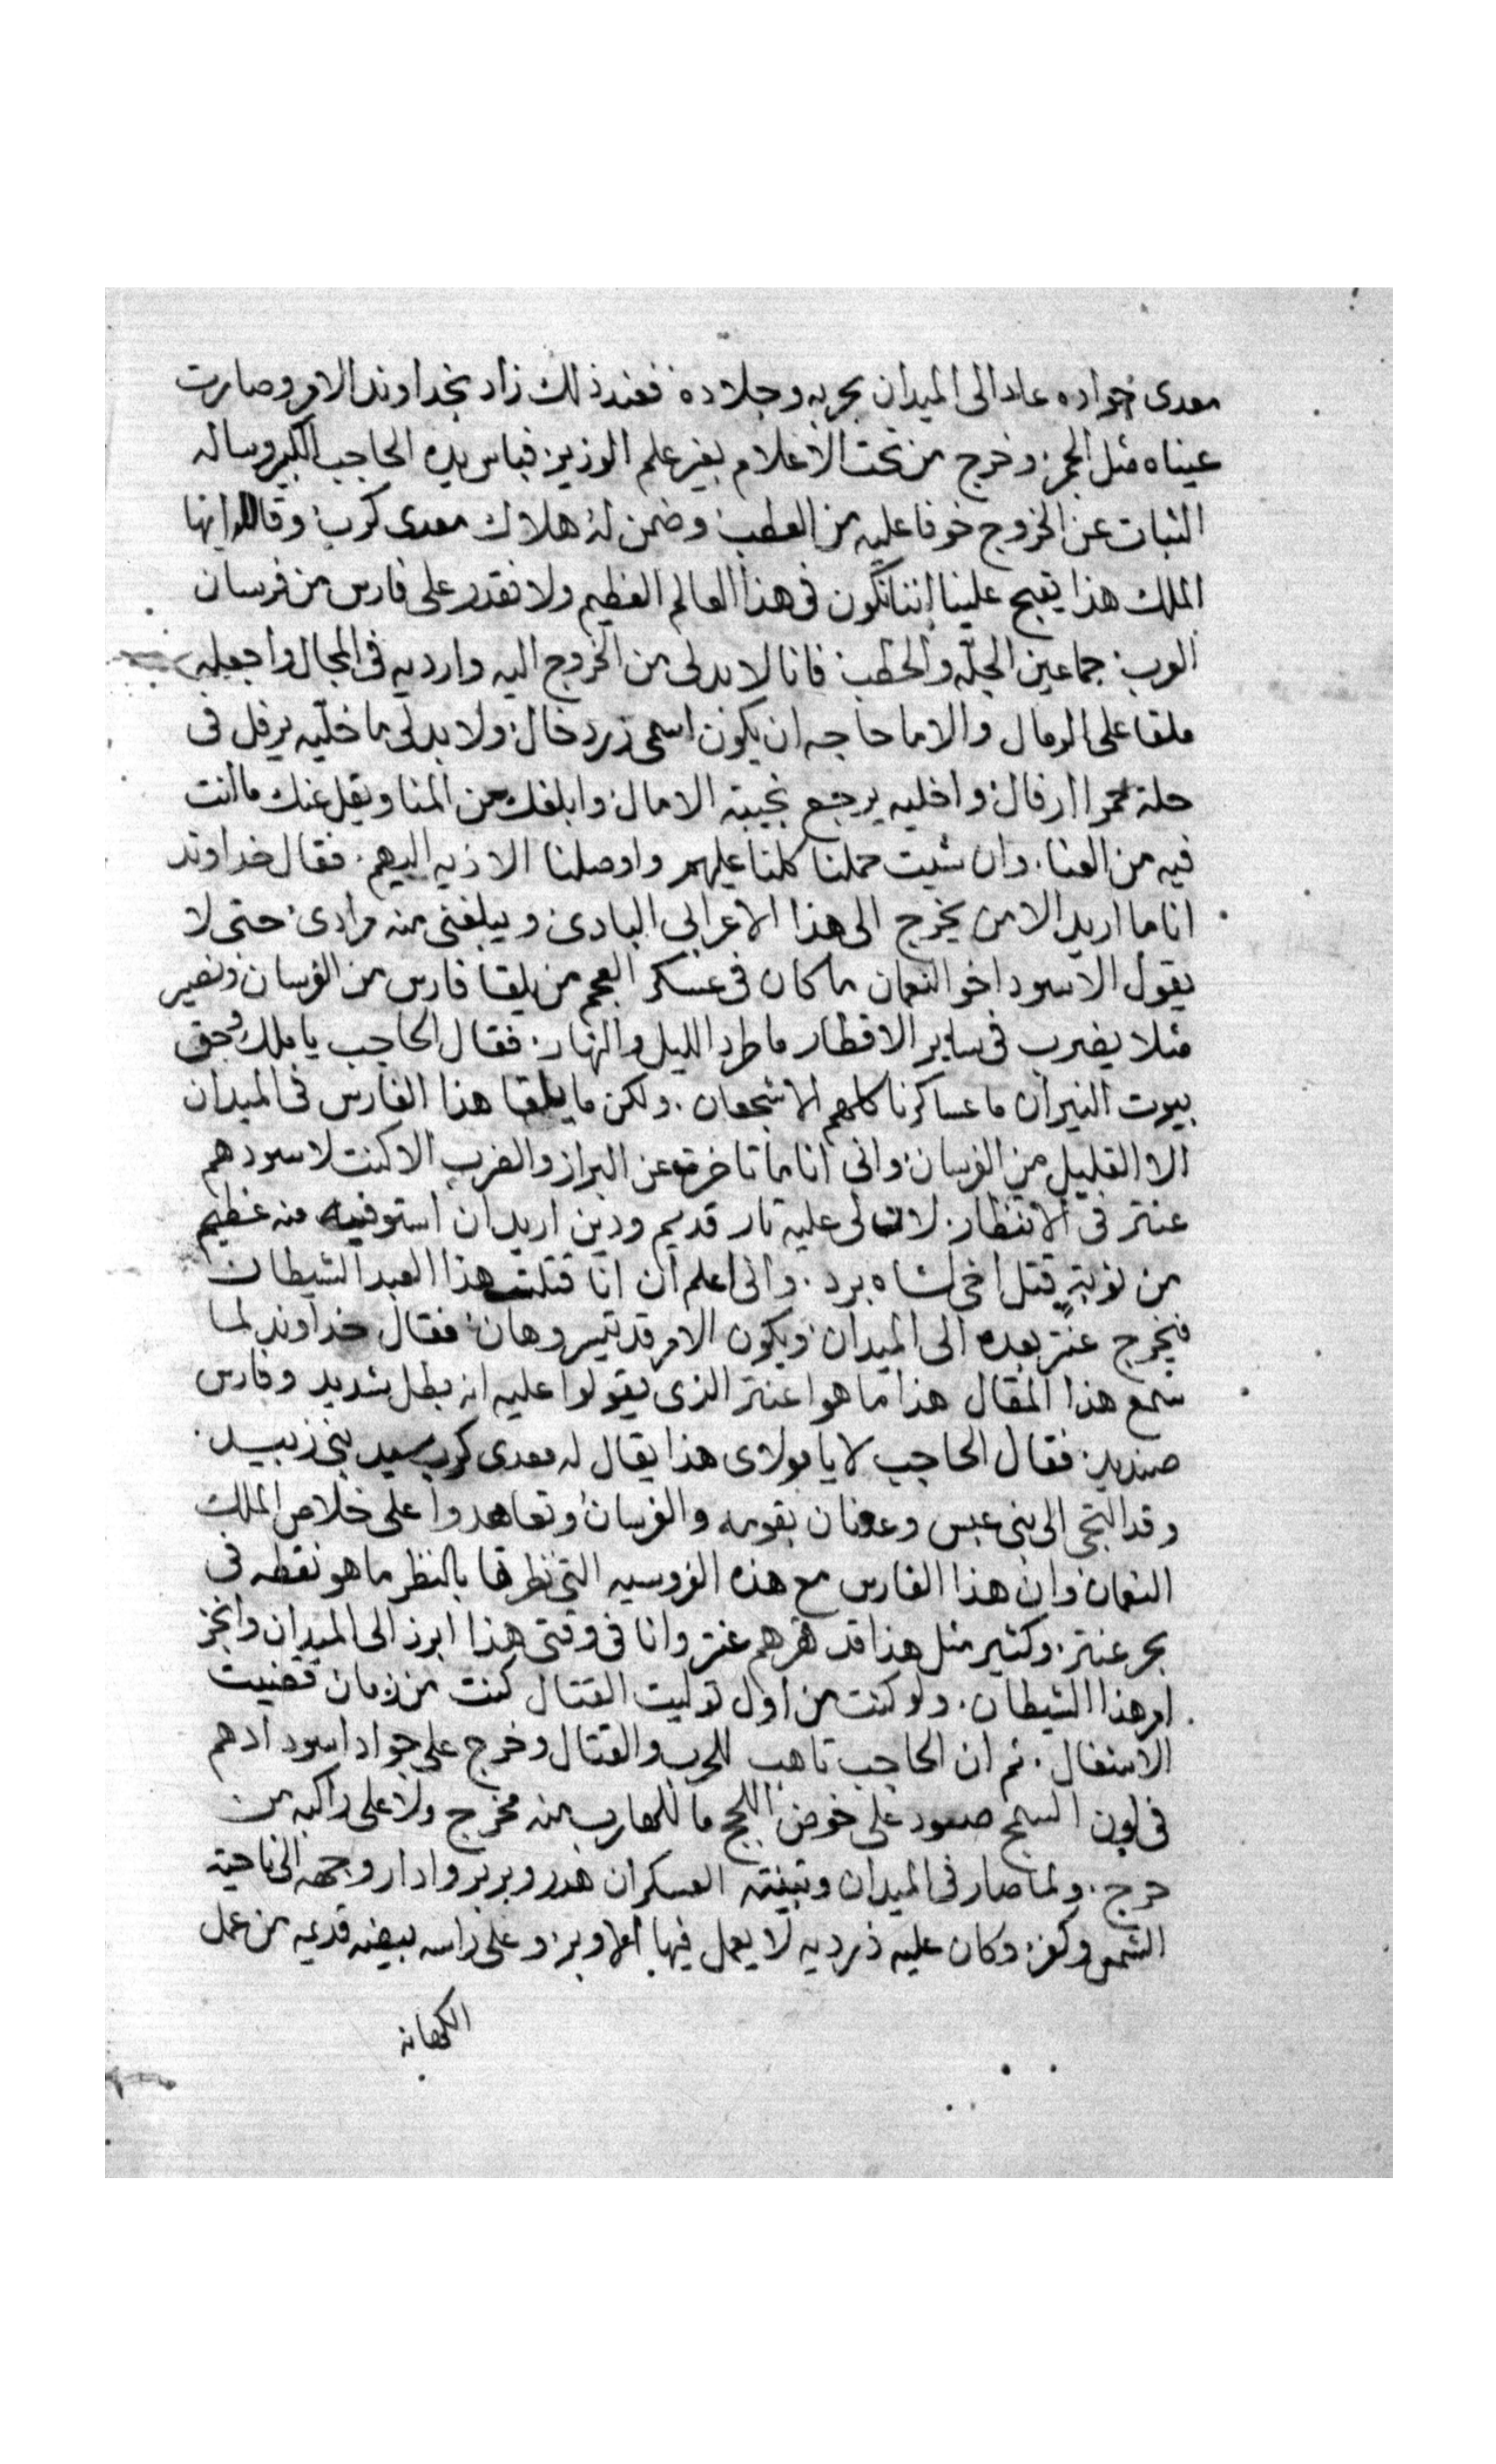 معدى جواده عاد الى الميدان بحربه وجلاده فعند ذلك زاد بخداوند الامر وصارت
عيناه مثل الجمر وخرج من تحت الاعلام بغير علم الوزير فباس يده الحاجب الكبير وساله
الثبات عن الخروج خوفا عليه من العطب وضمن له هلاك معدى كرب وقال له ايها
الملك هذا يقبح علينا اننا نكون فى هذا العالم العظيم ولا نقدر على فارس من فرسان
العرب جماعين الجلّه والحطب فانا لا بد لى من الخروج اليه وارديه فى المجال واجعله
ملقا على الرمال والا ما حاجه ان يكون اسمى زرد خال ولا بد لى ما خليه يرفل فى
حلة حمرا ارفال واخليه يرجع بخيبة الامال وابلغك من المنا ويقل عنك ما انت
فيه من العنا. وان شيت حملنا كلنا عليهم واوصلنا الاذيه اليهم. فقال خداوند
انا ما اريد الا من يخرج الى هذا الاعرابى البادى ويبلغنى منه مرادى حتى لا
يقول الاسود اخو النعمان ما كان فى عسكر العجم من يلقا فارس من الفرسان ونصير
مثلا يضرب فى ساير الاقطار ما طرد الليل والنهار فقال الحاجب يا ملك وحق
بيوت النيران ما عساكرنا كلهم الا شجعان. ولكن ما يلقا هذا الفارس فى الميدان
الا القليل من الفرسان وانى انا ما تاخرت عن البراز والضرب الا كنت لاسودهم
عنتر فى الانتظار. لان لى عليه تار قديم ودين اريد ان استوفيه منه عظيم
من نوبة قتل اخى شاه برد. وانى اعلم ان انا قتلت هذا العبد الشيطان
فيخرج عنتر بعده الى الميدان ويكون الامر قد تيسر وهان فقال خداوند لما
سمع هذا المقال هذا ما هوا عنتر الذى يقولوا عليه انه بطل شديد وفارس
صنديد. فقال الحاجب لا يا مولاى هذا يقال له معدى كرب سيد بنى زبيد.
وقد التجى الى بنى عبس وعدنان بقومه والفرسان وتعاهدوا على خلاص الملك
النعمان وان هذا الفارس مع هذه الفروسيه التى نظرتها بالنظر ما هو نقطه فى
بحر عنتر. وكثير مثل هذا قد قهرهم عنتر وانا فى وقتى هذا ابرز الى الميدان وانجز
امر هذا الشيطان. ولو كنت من اول توليت القتال كنت من زمان قضيت
الاشغال. ثم ان الحاجب تاهب للحرب والقتال وخرج على جواد اسود ادهم
فى لون السبج صعود على خوض اللجج ما للهارب منه مخرج ولا على راكبه من
حرج. ولما صار فى الميدان وتبينته العسكران هدر وبربر وادار وجهه الى ناحية
الشمس وكفر وكان عليه زرديه لا يعمل فيها الابر وعلى راسه بيضه قديمه من عمل
الكهانه